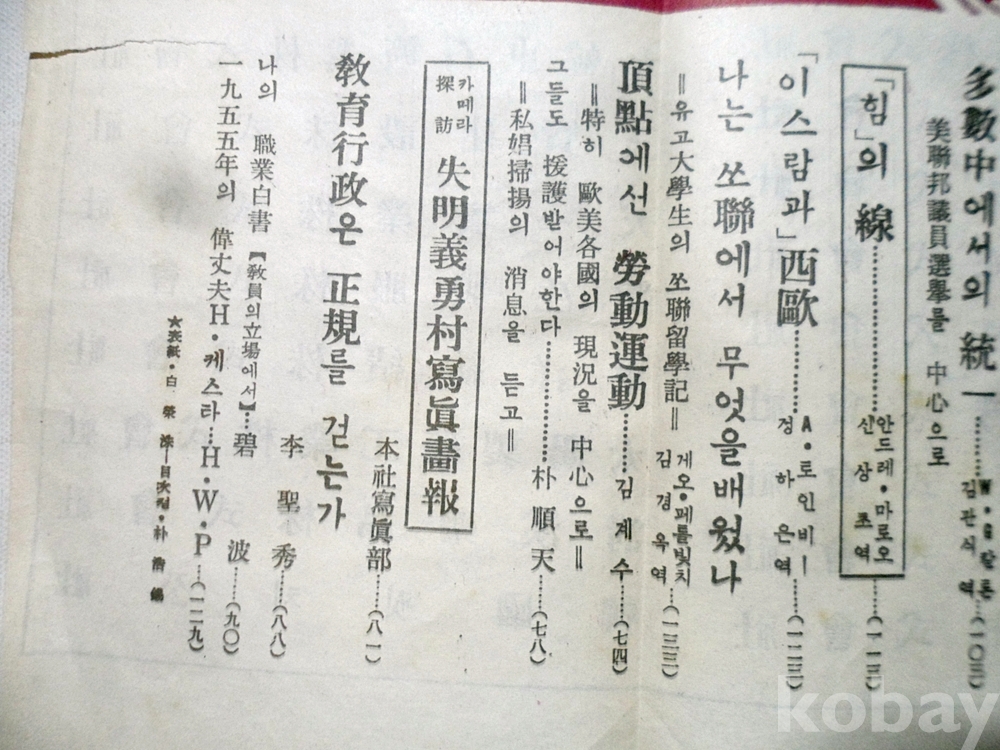 多數中에서의 統一
美聯邦議員選擧를 中心으로
김관식 역
(一○三)
「힘」의 線
안드레・마로오
신상초 역
(一一三)
「이스람과」西歐
A・토인비ー
정하은 역
(一二三)
나는 쏘聯에서 무엇을배웠나
=유고大學生의 쏘聯留學記=
게오・페틀빛치
김경옥 역
(一三三)
頂點에선 勞動運動
김계수
(七四)
=特히 歐美各國의 現況을 中心으로=
그들도 援護받어야한다
朴順天
(七八)
=私娼掃揚의 消息을 듣고=
카메라
探訪
失明義勇村寫眞畫報
本社寫眞部
(八一)
敎育行政은 正規를 걷는가
李聖秀
(八八)
나의 職業白書【敎員의立場에서】
碧波
(九〇)
一九五五年의 偉丈夫H・케스라
H・W・P
(一二九)
☆表紙・白榮洙